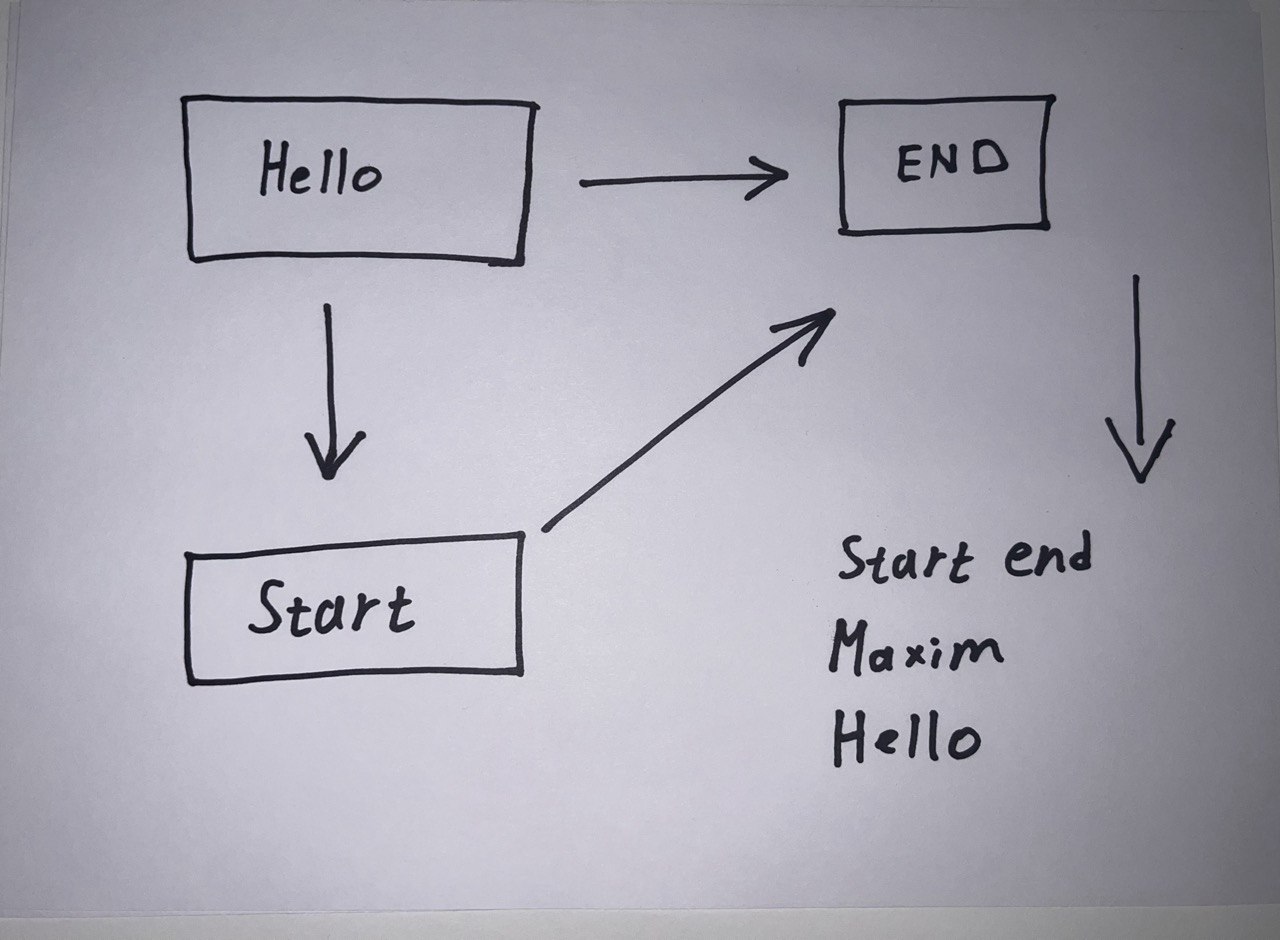 Hello
END
Start
Start end
Maxim
Hello